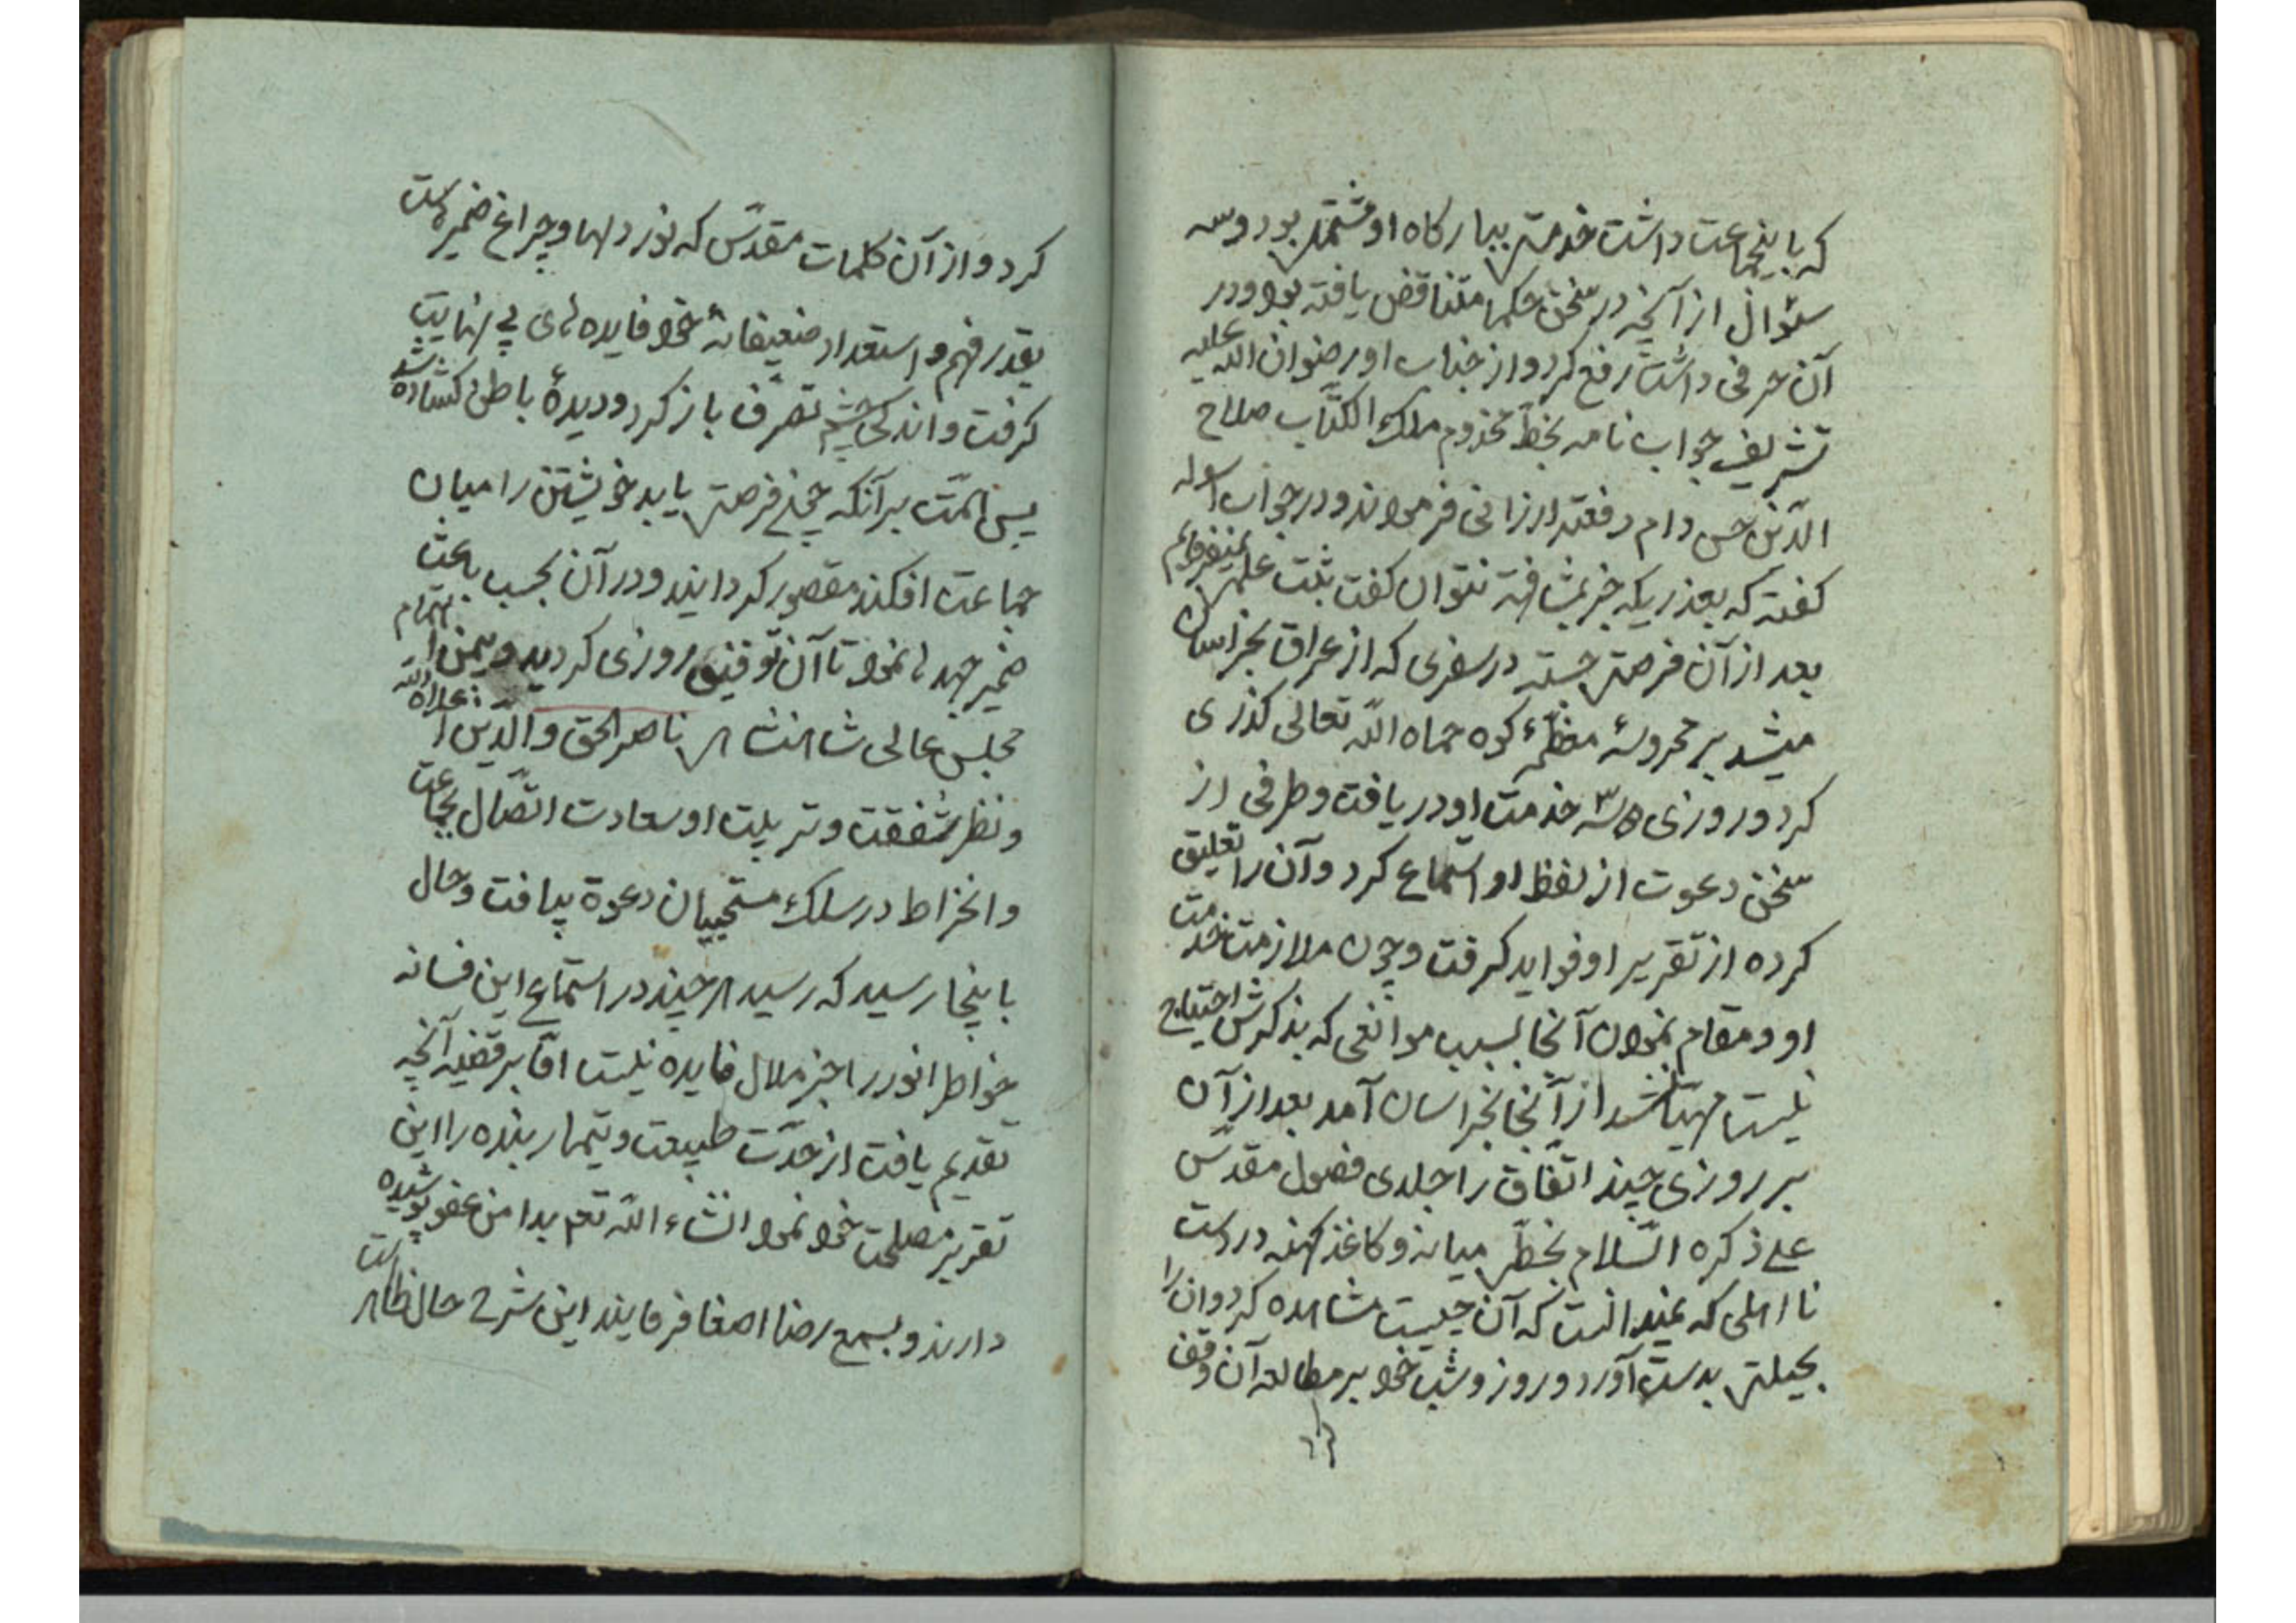 که باینجماعت داشت خدمتی ببارکاه او مشتمل بر دو سه
سئوال از آنچه در سخن حکما متناقض یافته بود و در
آن حرفی داشت رفع کرد و از جناب او رضوان الله علیه
تشریف جواب نامه بخط مخدوم ملک الکتاب صلاح
الدین حسن دام رفعته ارزانی فرمودند و در جواب اسوله
کفته که بعذریکه جز بمشافهه نتوان کفت علمی نمیفرمایم
بعد از آن فرصتی جسته در سفری که از عراق بخراسان
میشد بر محروسهٔ معظمهٔ کوه حماه الله تعالی کذری
کرد و روزی دو سه خدمت او دریافت و طرفی از
سخن دعوت از لفظ او استماع کرد و آن را تعلیق
کرده از تقریر او فواید کرفت و چون ملازمت خدمت
او و مقام نمودن آنجا بسبب موانعی که بذکرش احتیاج
نیست مهیا نشد از آنجا بخراسان آمد بعد از آن
بر روزی چند اتفاق را جلدی فصول مقدس
علی ذکره السلام بخطی میانه و کاغذ کهنه در دست
نا اهلی که نمیدانست که آن چیست مشاهده کرد و آن را
بحیلتی بدست آورد و روز و شب خود بر مطالعه آن وقف
کرد و از آن کلمات مقدس که نور دلها و چراغ ضمیرهاست
بقدر فهم و استعداد ضعیفانهٔ خود فایده‌های بی نهایت
کرفت و اندکی چشم تصرف باز کرد و دیدهٔ باطن کشاده شد
پس همت بر آنکه چون فرصتی یابد خویشتن را میان
جماعت افکند مقصور کردانید و در آن بحسب باعث
ضمیر جهدها نمود تا آن توفیق روزی کردید و بیمن اهتمام
مجلس عالی شاهنشاهی ناصر الحق والدین اعلاه الله
و نظر شفقت و تربیت او سعادت اتصال بجماعت
و انخراط در سلک مستجیبان دعوة بیافت و حال
باینجا رسید که رسید هر چند در استماع این فسانه
خواطر انور را جز ملال فایده نیست اما بر قضیه آنچه
تقدیم یافت از حدت طبیعت و تیمار بنده را این
تقریر مصلحت خود نمود انشاء الله تعم بدامن عفو پوشیده
دارند و بسمع رضا اصغا فرمایند این شرح حال ظاهر است